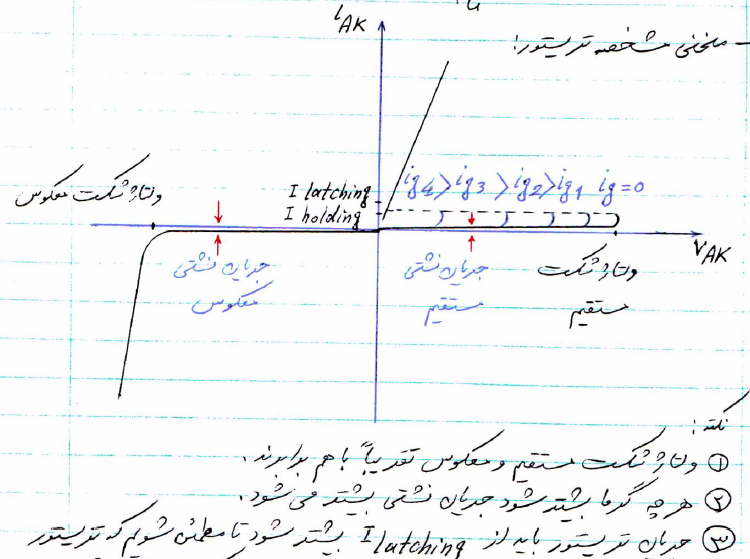 - منحنی مشخصه تریستور:
iAK
ig4>ig3>ig2>ig1 ig=0
I latching
I holding
VAK
ولتاژ شکست معکوس
جریان نشتی معکوس
جریان نشتی مستقیم
ولتاژ شکست مستقیم
نکته:
① ولتاژ شکست مستقیم و معکوس تقریباً با هم برابرند.
② هر چه گرما بیشتر شود جریان نشتی بیشتر می شود.
③ جریان تریستور باید از I latching بیشتر شود تا مطمئن شویم که تریستور